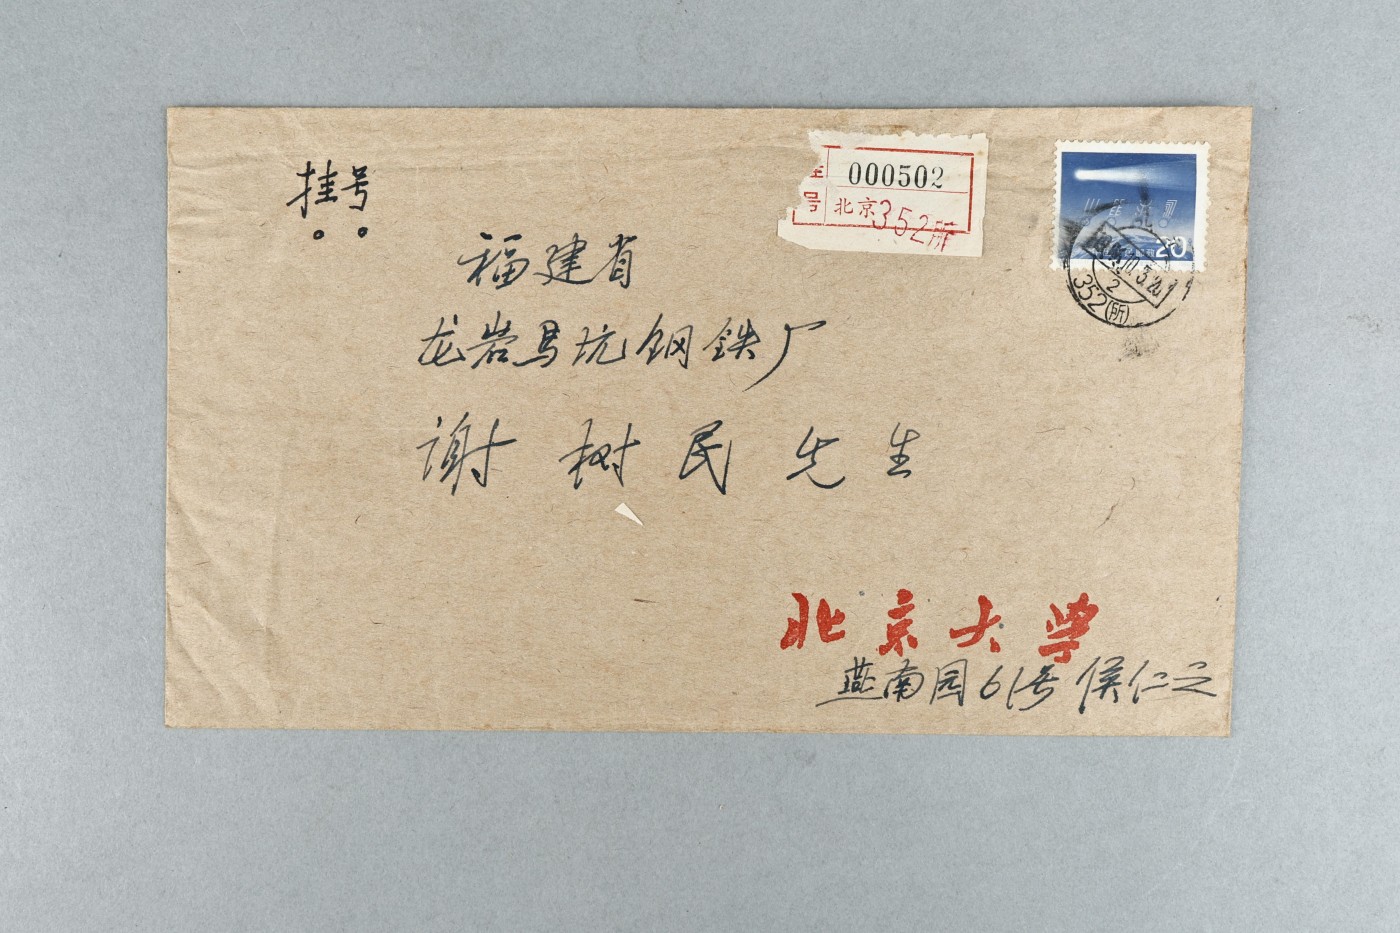 挂号
000502
号 北京352所
20
352(所)
福建省
龙岩马坑钢铁厂
谢树民先生
北京大学
燕南园61号 侯仁之